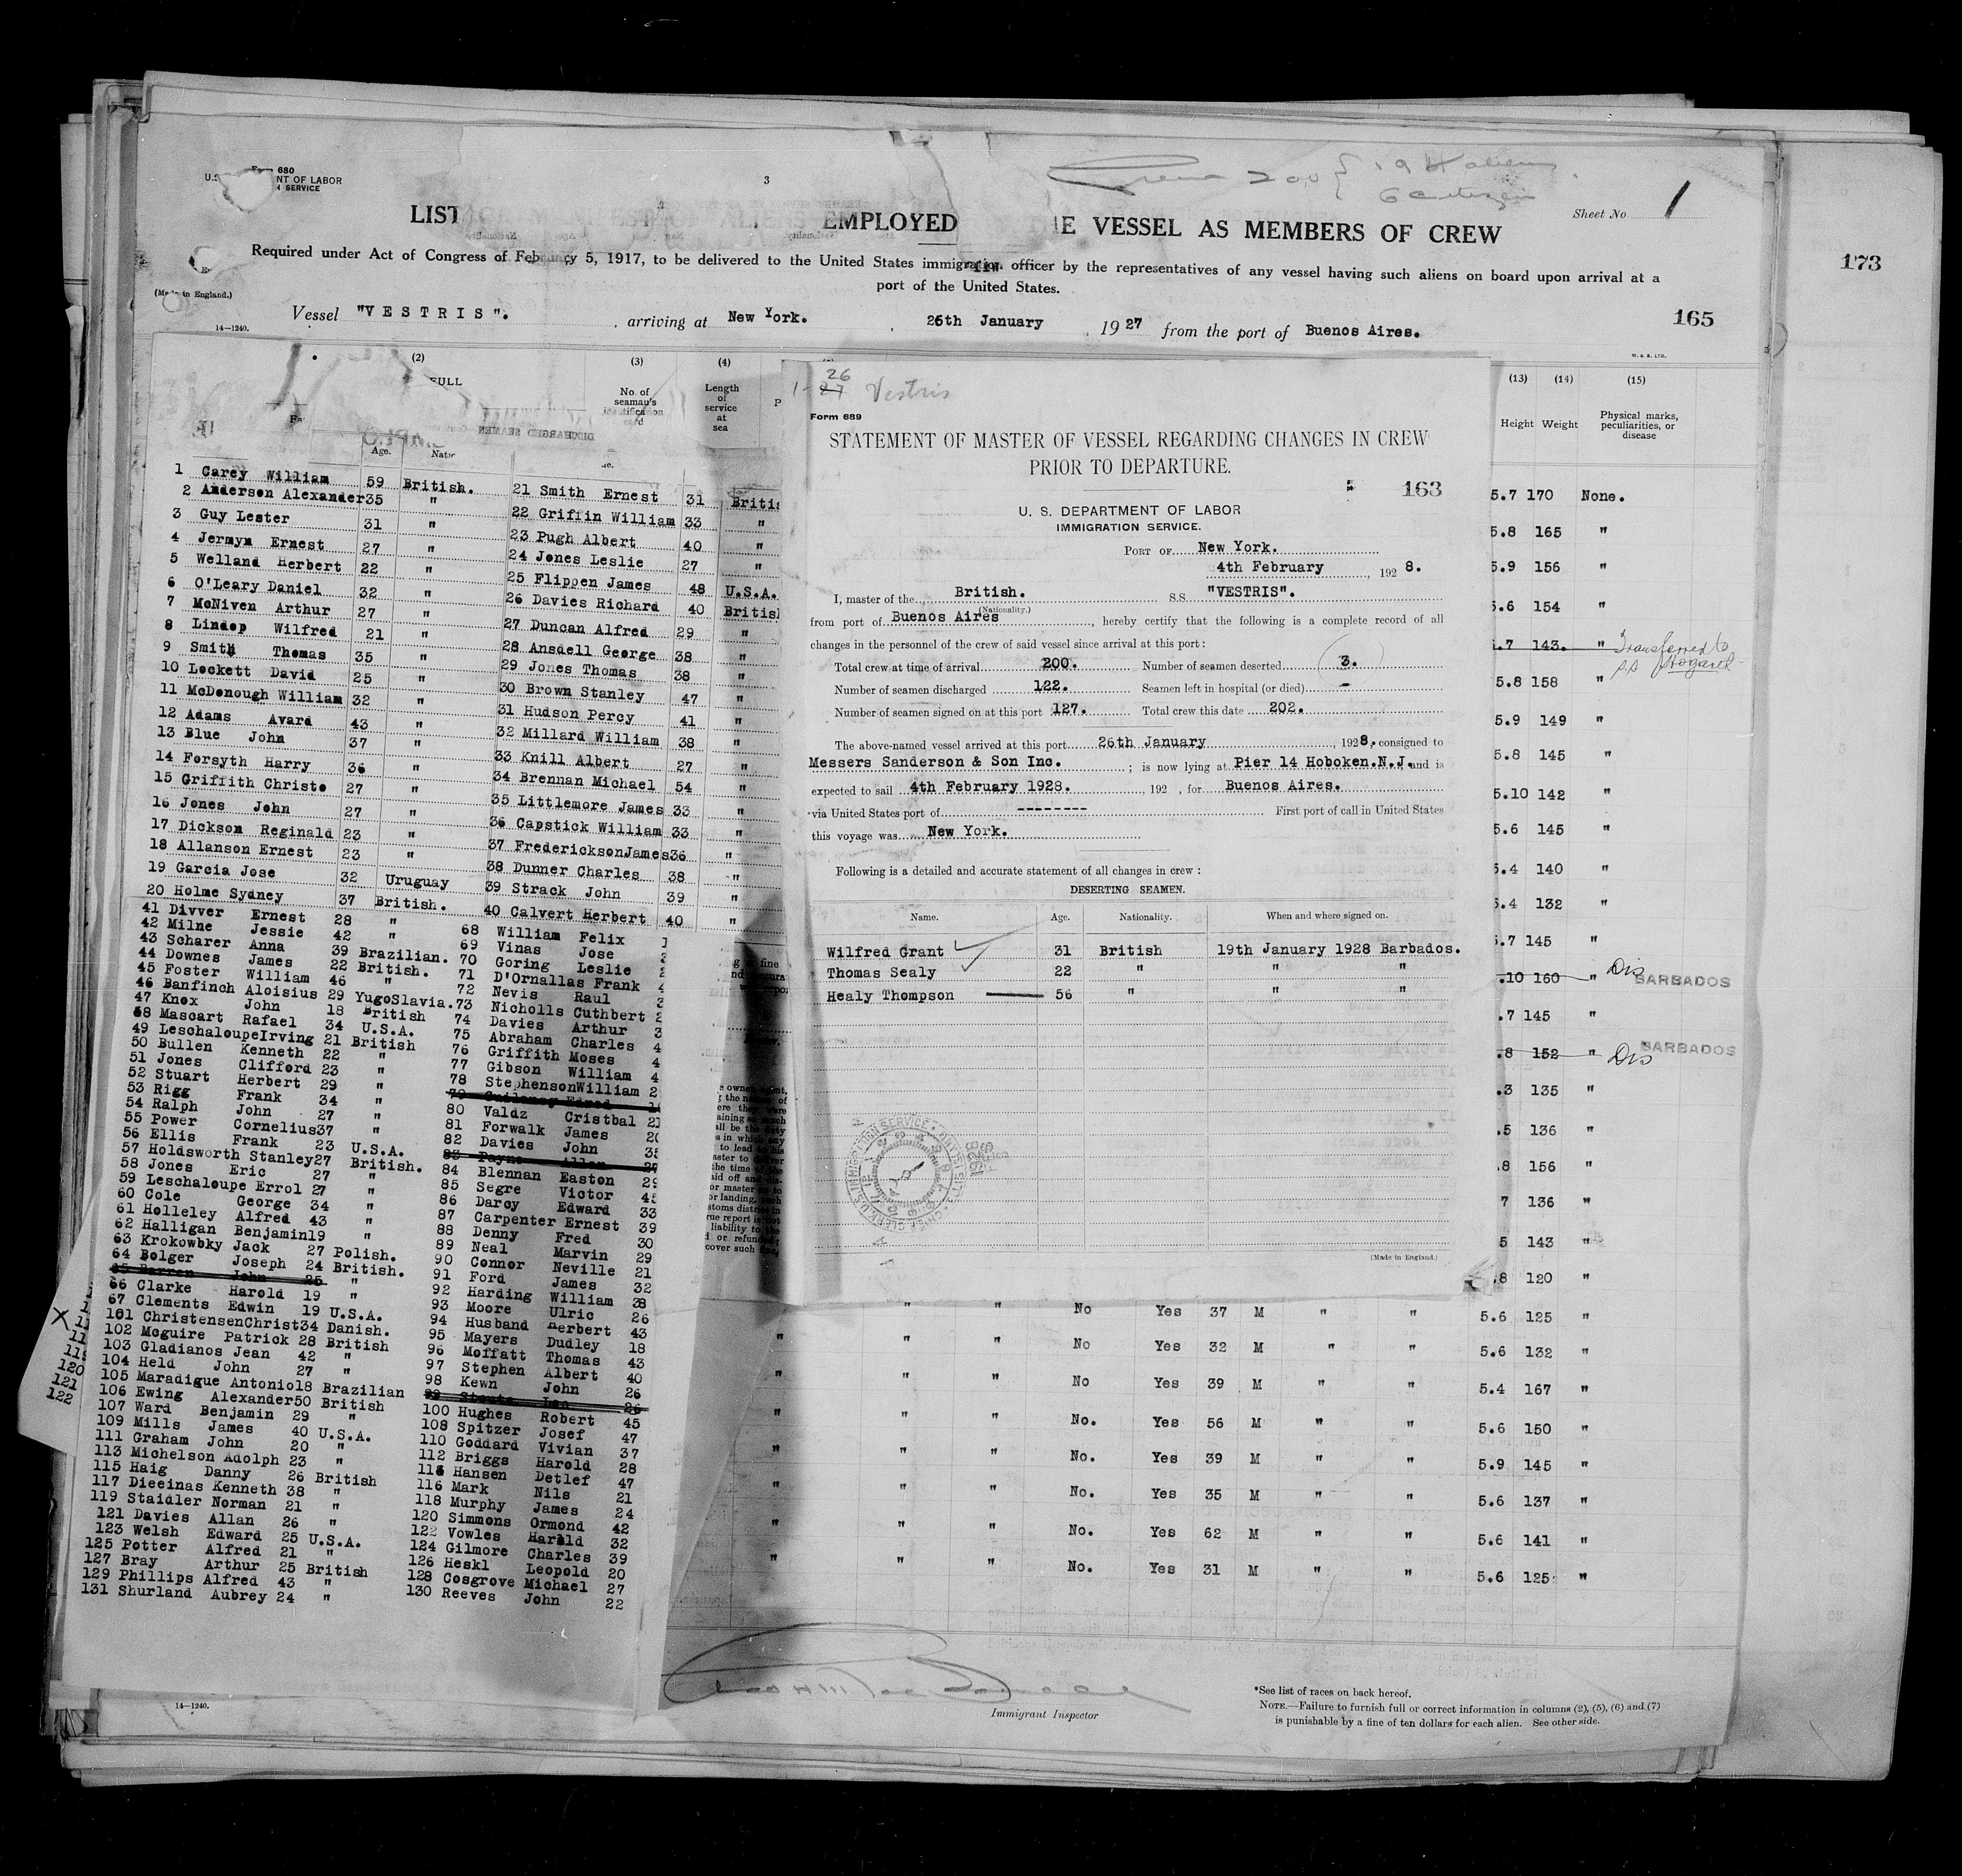 Form 680
LABOR
SERVICE
3
Crew 200 { 194 aliens
6 citizen
Sheet No 1
LIST EMPLOYED THE VESSEL AS MEMBERS OF CREW
Required under Act of Congress of February 5, 1917, to be delivered to the United States immigration officer by the representatives of any vessel having such aliens on board upon arrival at a
port of the United States.
173
(Made in England.)
Vessel "VESTRIS". , arriving at New York. , 26th January , 1927 from the port of Buenos Aires.
165
14—1240.
W. & S. LTD.
(2) (3) (4)
FULL
No. of seaman's identification
Length of service at sea
(13) (14) (15)
Height Weight Physical marks, peculiarities, or disease
DISCHARGED SEAMEN
Age.
1 Carey William 59 British.
2 Anderson Alexander 35 "
3 Guy Lester 31 "
4 Jermym Ernest 27 "
5 Welland Herbert 22 "
6 O'Leary Daniel 32 "
7 McNiven Arthur 27 "
8 Lindop Wilfred 21 "
9 Smith Thomas 35 "
10 Lockett David 25 "
11 McDonough William 32 "
12 Adams Avard 43 "
13 Blue John 37 "
14 Forsyth Harry 36 "
15 Griffith Christo 27 "
16 Jones John 27 "
17 Dickson Reginald 23 "
18 Allanson Ernest 23 "
19 Garcia Jose 32 Uruguay
20 Holme Sydney 37 British.
21 Smith Ernest 31
22 Griffin William 33 "
23 Pugh Albert 40 "
24 Jones Leslie 27 "
25 Flippen James 48 U.S.A.
26 Davies Richard 40 British
27 Duncan Alfred 29 "
28 Ansdell George 38 "
29 Jones Thomas 38 "
30 Brown Stanley 47 "
31 Hudson Percy 41 "
32 Millard William 38 "
33 Knill Albert 27 "
34 Brennan Michael 54 "
35 Littlemore James 33 "
36 Capstick William 33 "
37 Frederickson James 36 "
38 Dunner Charles 38 "
39 Strack John 39 "
40 Calvert Herbert 40 "
41 Divver Ernest 28 "
42 Milne Jessie 42 "
43 Scharer Anna 39 Brazilian.
44 Downes James 22 British.
45 Foster William 46 "
46 Banfinch Aloisius 29 YugoSlavia.
47 Knox John 18 British
68 Mascart Rafael 34 U.S.A.
49 Leschaloupe Irving 21 British
50 Bullen Kenneth 22 "
51 Jones Clifford 23 "
52 Stuart Herbert 29 "
53 Rigg Frank 34 "
54 Ralph John 27 "
55 Power Cornelius 37 "
56 Ellis Frank 23 U.S.A.
57 Holdsworth Stanley 27 British.
58 Jones Eric 27 "
59 Leschaloupe Errol 27 "
60 Cole George 34 "
61 Holleley Alfred 43 "
62 Halligan Benjamin 19 "
63 Krokowbky Jack 27 Polish.
64 Bolger Joseph 24 British.
65 Barren John 25 "
66 Clarke Harold 19 "
67 Clements Edwin 19 U.S.A.
101 Christensen Christ 34 Danish.
102 Mcguire Patrick 28 British
103 Gladianos Jean 42 "
104 Held John 27 "
105 Maradigue Antonio 18 Brazilian
106 Ewing Alexander 50 British
107 Ward Benjamin 29 "
109 Mills James 40 U.S.A.
111 Graham John 20 "
113 Michelson Adolph 23 "
115 Haig Danny 26 British
117 Dieeinas Kenneth 38 "
119 Staidler Norman 21 "
121 Davies Allan 26 "
123 Welsh Edward 25 U.S.A.
125 Potter Alfred 21 "
127 Bray Arthur 25 British
129 Phillips Alfred 43 "
131 Shurland Aubrey 24 "
68 William Felix
69 Vinas Jose
70 Goring Leslie
71 D'Ornallas Frank
72 Nevis Raul
73 Nicholls Cuthbert
74 Davies Arthur
75 Abraham Charles
76 Griffith Moses
77 Gibson William
78 Stephenson William
79
80 Valdz Cristbal
81 Forwalk James
82 Davies John
83 Payne Allen
84 Blennan Easton
85 Segre Victor
86 Darcy Edward 33
87 Carpenter Ernest 39
88 Denny Fred 30
89 Neal Marvin 29
90 Connor Neville 21
91 Ford James 32
92 Harding William 28
93 Moore Ulric 26
94 Husband Herbert 43
95 Mayers Dudley 18
96 Moffatt Thomas 43
97 Stephen Albert 40
98 Kewn John 26
99 26
100 Hughes Robert 45
108 Spitzer Josef 47
110 Goddard Vivian 37
112 Briggs Harold 28
114 Hansen Detlef 47
116 Mark Nils 21
118 Murphy James 24
120 Simmons Ormond 42
122 Vowles Harald 32
124 Gilmore Charles 39
126 Heskl Leopold 20
128 Cosgrove Michael 27
130 Reeves John 22
120
121
122
1-26 Vestris
Form 689
STATEMENT OF MASTER OF VESSEL REGARDING CHANGES IN CREW
PRIOR TO DEPARTURE.
163
U. S. DEPARTMENT OF LABOR
IMMIGRATION SERVICE.
PORT OF New York.
4th February , 1928.
I, master of the British. S.S. "VESTRIS".
(Nationality.)
from port of Buenos Aires , hereby certify that the following is a complete record of all
changes in the personnel of the crew of said vessel since arrival at this port:
Total crew at time of arrival 200. Number of seamen deserted (3.)
Number of seamen discharged 122. Seamen left in hospital (or died) -
Number of seamen signed on at this port 127. Total crew this date 202.
The above-named vessel arrived at this port 26th January , 1928, consigned to
Messers Sanderson & Son Inc. ; is now lying at Pier 14 Hoboken.N.J. and is
expected to sail 4th February 1928. , 192 , for Buenos Aires.
via United States port of -------- First port of call in United States
this voyage was New York.
Following is a detailed and accurate statement of all changes in crew :
DESERTING SEAMEN.
Name. Age. Nationality. When and where signed on.
Wilfred Grant 31 British 19th January 1928 Barbados.
Thomas Sealy 22 " " "
Healy Thompson 56 " " "
(Made in England.)
5.7 170 None.
5.8 165 "
5.9 156 "
5.6 154 "
.7 143. " Transferred to
ss Hogarth
5.8 158 "
5.9 149 "
5.8 145 "
5.10 142 "
5.6 145 "
5.4 140 "
5.4 132 "
5.7 145 "
.10 160 " Dis BARBADOS
.7 145 "
.8 152 " Dis BARBADOS
.3 135 "
.5 136 "
.8 156 "
7 136 "
5 143 "
.8 120 "
" " No Yes 37 M " " 5.6 125 "
" " " No Yes 32 M " " 5.6 132 "
" " " No Yes 39 M " " 5.4 167 "
" " " No. Yes 56 M " " 5.6 150 "
" " " No. Yes 39 M " " 5.9 145 "
" " " No. Yes 35 M " " 5.6 137 "
" " " No. Yes 62 M " " 5.6 141 "
" " " No. Yes 31 M " " 5.6 125 "
14—1240.
Immigrant Inspector
*See list of races on back hereof.
NOTE.—Failure to furnish full or correct information in columns (2), (5), (6) and (7)
is punishable by a fine of ten dollars for each alien. See other side.